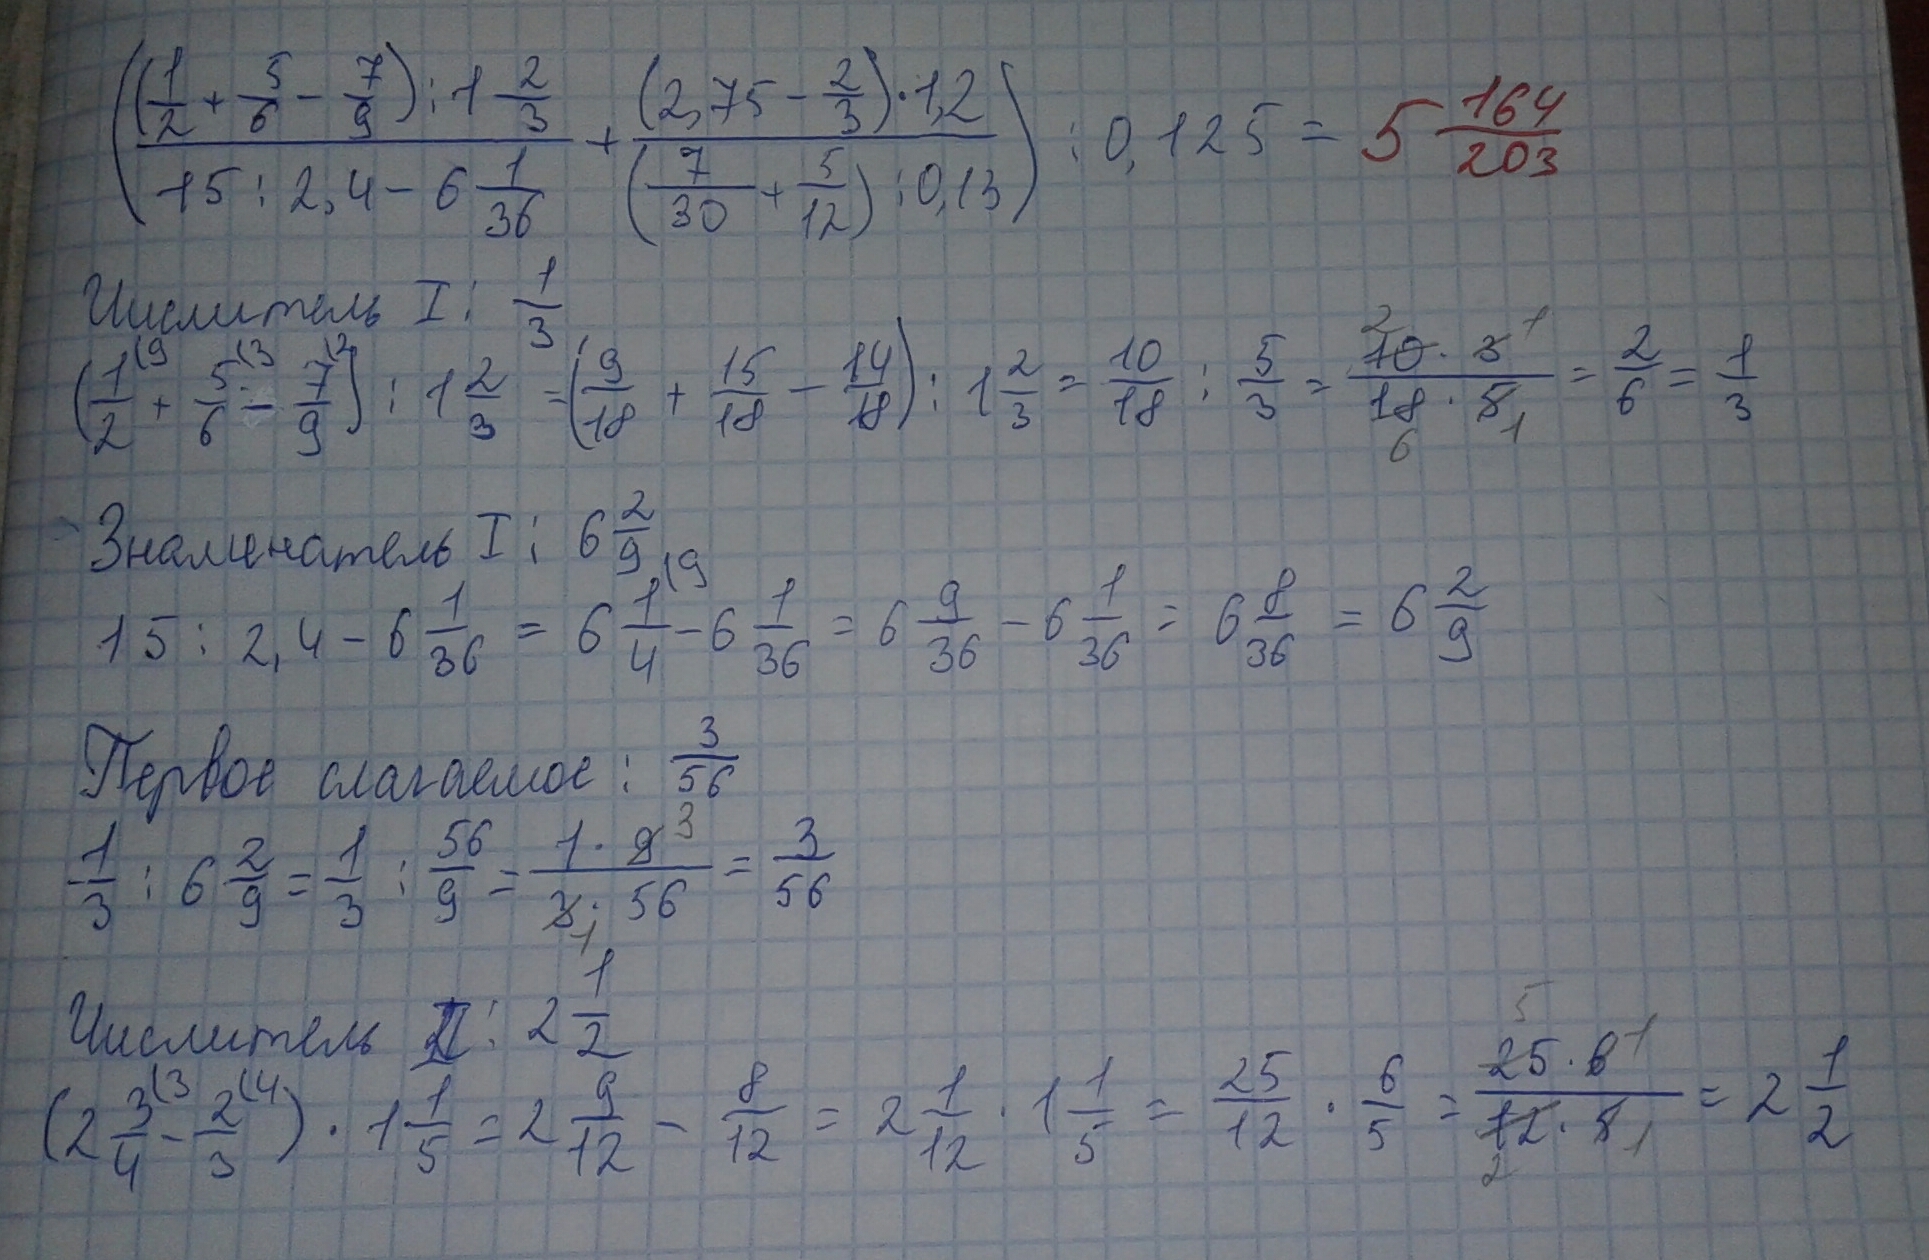 ((1/2 + 5/6 − 7/9) : 1 2/3 / 15 : 2,4 − 6 1/36 + (2,75 − 2/3) · 1,2 / (7/30 + 5/12) : 0,13) : 0,125 = 5 164/203
Числитель I : 1/3
(1/2 (9 + 5/6 (3 − 7/9 (2) : 1 2/3 = (9/18 + 15/18 − 14/18) : 1 2/3 = 10/18 : 5/3 = 10 2 · 3 1 / 18 6 · 5 1 = 2/6 = 1/3
Знаменатель I : 6 2/9
15 : 2,4 − 6 1/36 = 6 1/4 (9 − 6 1/36 = 6 9/36 − 6 1/36 = 6 8/36 = 6 2/9
Первое слагаемое : 3/56
1/3 : 6 2/9 = 1/3 : 56/9 = 1 · 9 3 / 3 1 · 56 = 3/56
Числитель II : 2 1/2
(2 3/4 (3 − 2/3 (4) · 1 1/5 = 2 9/12 − 8/12 = 2 1/12 · 1 1/5 = 25/12 · 6/5 = 25 5 · 6 1 / 12 2 · 5 1 = 2 1/2